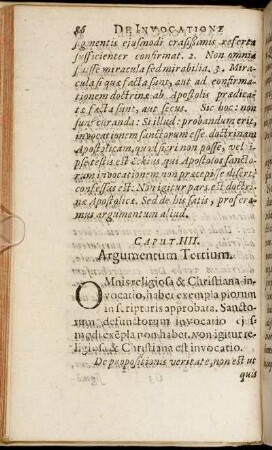 86 DE INVOCATIONE
figmentis ejusmodi crassissimis referta
sufficienter confirmat. 2. Non omnia
fuisse miracula sed mirabilia. 3. Mira-
cula si quæ facta sunt, aut ad confirma-
tionem doctrinæ ab Apostolis prædica-
tæ facta sunt, aut secus. Sic hoc: non
sunt curanda: Si illud: probandum erit,
invocationem sanctorum esse doctrinam
Apostolicam, quod si ri non posse, vel i-
pse testis est Eckius qui Apostolos sancto-
rum invocationem non præcepisse diserte
confessus est: Non igitur pars est doctri-
næ Apostolicæ. Sed de his satis, profera-
mus argumentum aliud.
CAPUT. IIII.
Argumentum Tertium.
OMnis religiosa & Christiana in-
vocatio, habet exempla piorum
in scripturis approbata. Sancto-
rum defunctorum invocatio ejus-
modi exēpla non habet. Non igitur re-
ligiosa & Christiana est invocatio.
De propositionis veritate, non est ut
quis